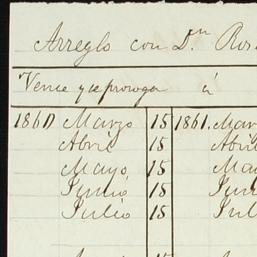 Arreglo con D.n Ros
Vence y se proroga á
1860 Marzo 15 1861. Mar
Abril 15 Abril
Mayo 15 Ma
Junio 15 Jun
Julio 15 Jul